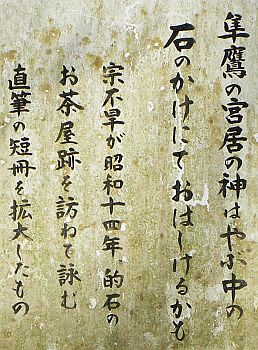 隼鷹の宮居の神はやぶ中の
石のかけにておはしけるかも
宗不旱が昭和十四年、的石の
お茶屋跡を訪ねて詠む
直筆の短冊を拡大したもの